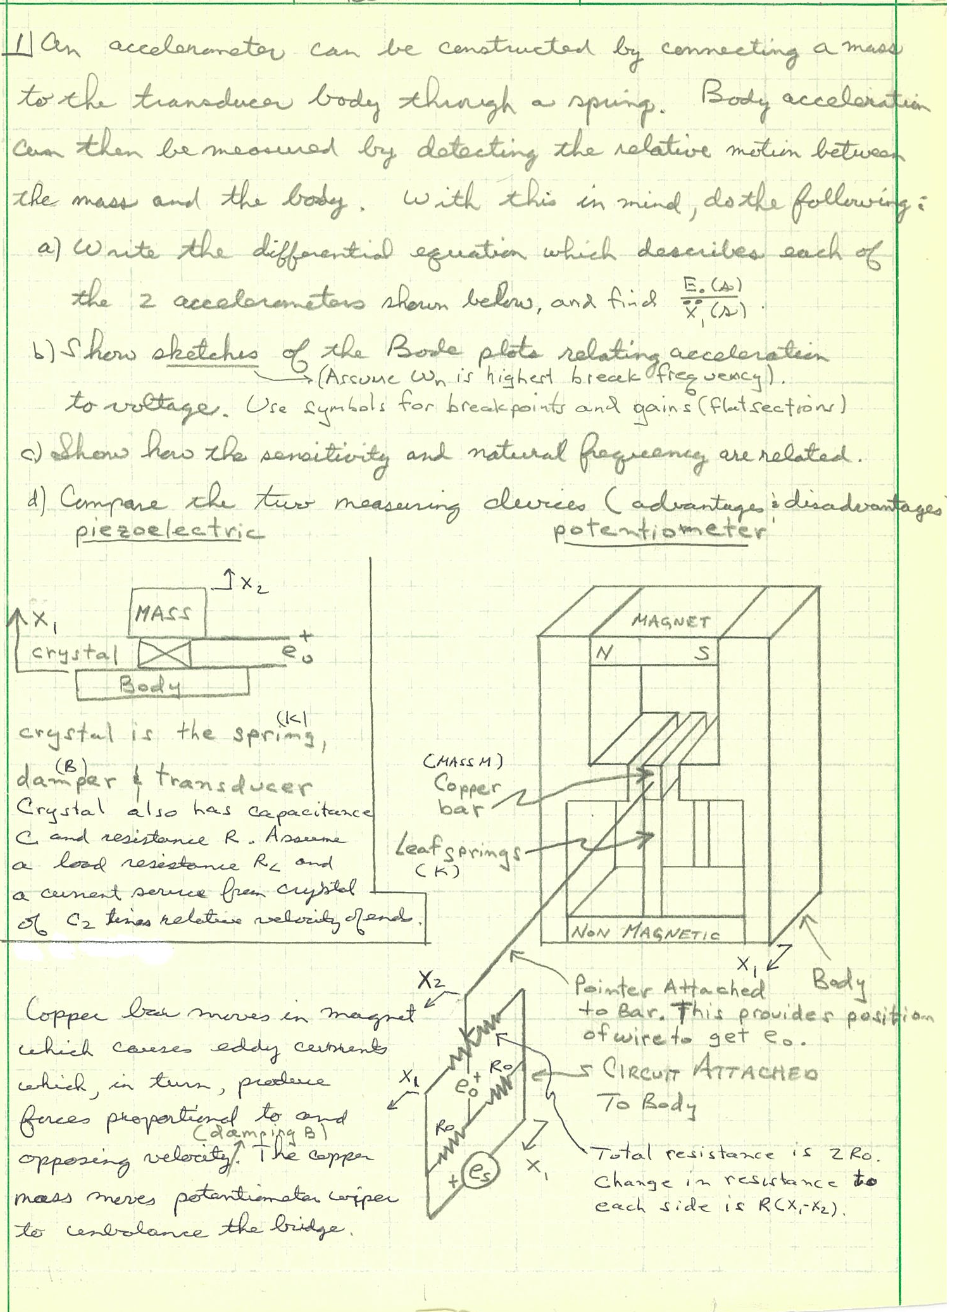 1) An accelerometer can be constructed by connecting a mass
to the transducer body through a spring. Body acceleration
can then be measured by detecting the relative motion between
the mass and the body. With this in mind, do the following:
a) Write the differential equation which describes each of
the 2 accelerometers shown below, and find E₀(s)/Ẍ₁(s).
b) Show sketches of the Bode plots relating acceleration
(Assume ωn is highest break frequency).
to voltage. Use symbols for breakpoints and gains (flat sections)
c) Show how the sensitivity and natural frequency are related.
d) Compare the two measuring devices (advantages & disadvantages
piezoelectric
potentiometer
X₂
X₁
MASS
crystal
+
e₀
-
Body
crystal is the spring, (K)
damper (B) & transducer
Crystal also has capacitance
C and resistance R. Assume
a load resistance RL and
a current service from crystal
of C₂ times relative velocity of ends.
MAGNET
N S
(MASS M)
Copper
bar
Leaf springs
(K)
NON MAGNETIC
X₁
Body
Pointer Attached
to Bar. This provides position
of wire to get e₀.
CIRCUIT ATTACHED
To Body
X₂
X₁
e₀ +
-
R₀
R₀
+ es
X₁
Total resistance is 2R₀.
Change in resistance to
each side is R(X₁-X₂).
Copper bar moves in magnet
which causes eddy currents
which, in turn, produce
forces proportional to and
(damping B)
opposing velocity. The copper
mass moves potentiometer wiper
to unbalance the bridge.